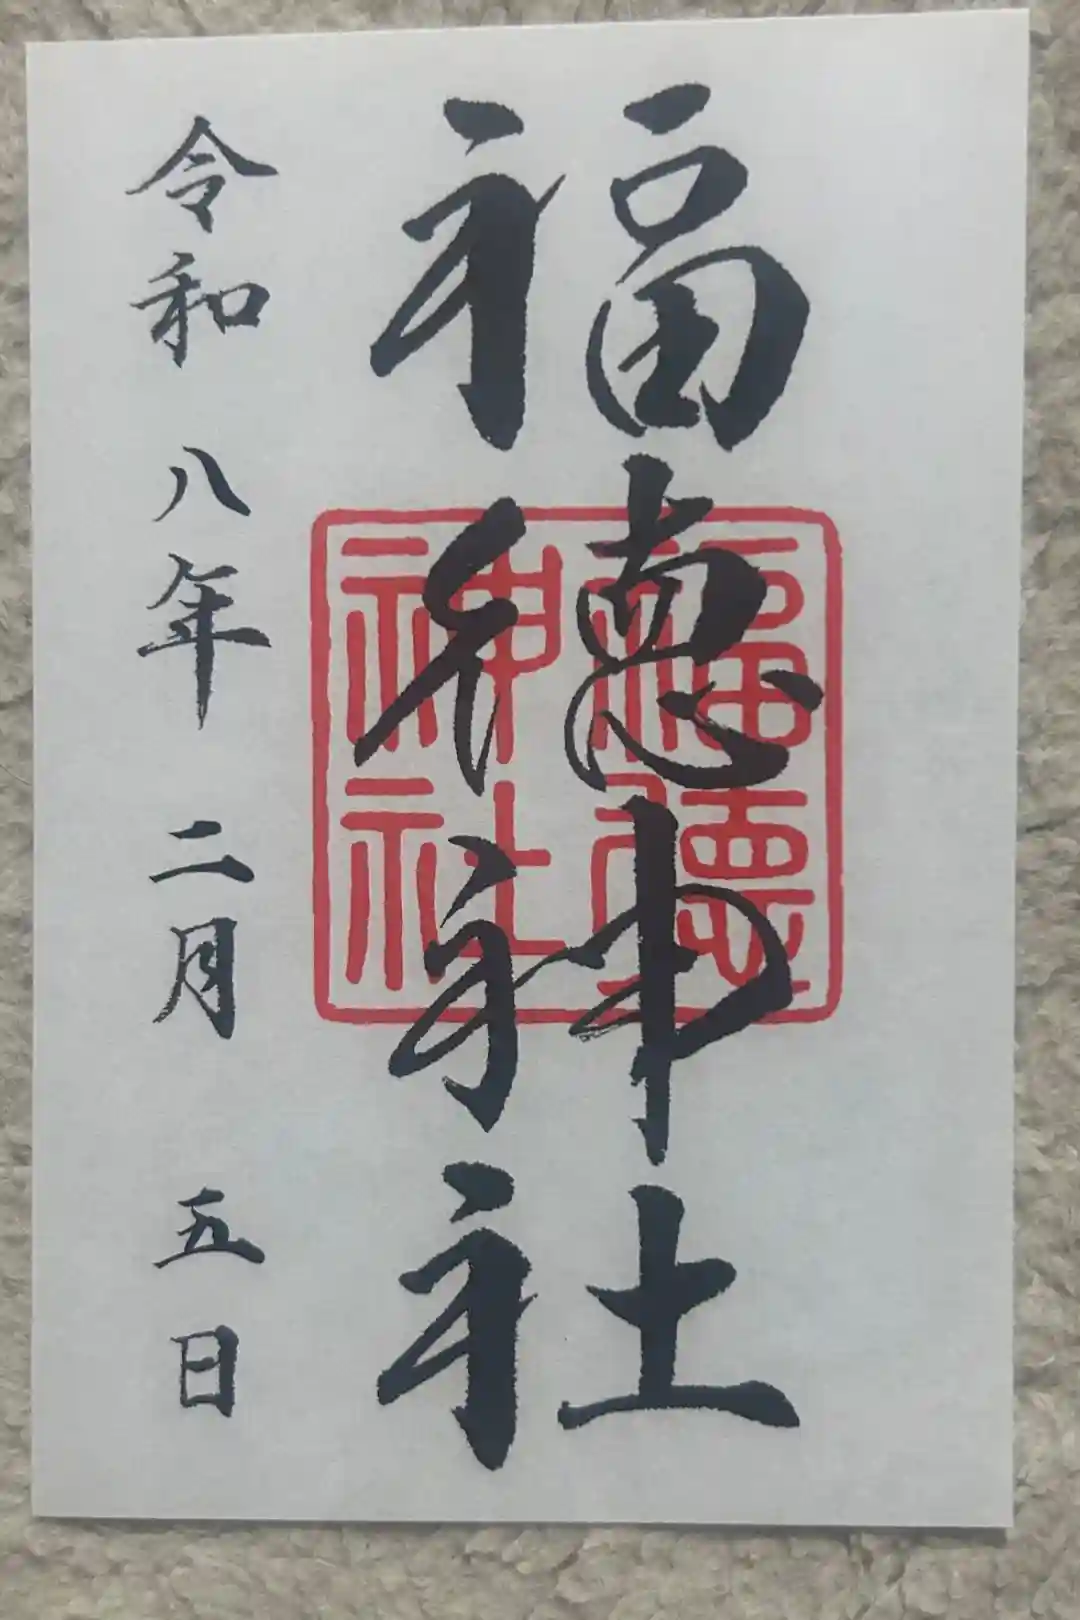 福徳神社
福徳
神社
令和八年二月五日